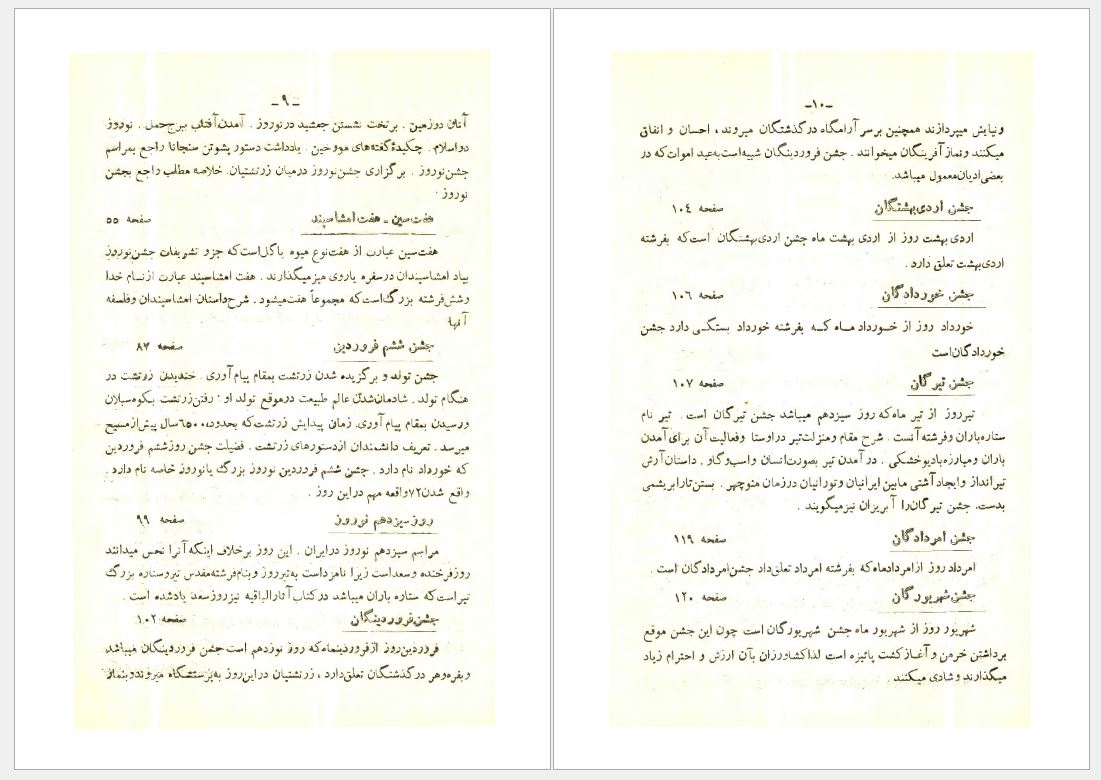 ـ ٩ ـ
آنان دوزمین . برتخت نشستن جمشید درنوروز . آمدن آفتاب ببرج حمل . نوروز
دراسلام . چکیدهٔ گفته‌های مورخین . یادداشت دستور پشوتن سنجانا راجع بمراسم
جشن نوروز . برگزاری جشن نوروز درمیان زرتشتیان. خلاصه مطلب راجع بجشن
نوروز .
هفت سین ـ هفت امشاسپند صفحه ٥٥
هفت سین عبارت از هفت نوع میوه یا گل است که جزو تشریفات جشن نوروز
بیاد امشاسپندان در سفره یا روی میز میگذارند . هفت امشاسپند عبارت از نام خدا
وشش فرشته بزرگ است که مجموعاً هفت میشود . شرح داستان امشاسپندان وفلسفه
آنها
جشن ششم فروردین صفحه ٨٧
جشن تولد و برگزیده شدن زرتشت بمقام پیام آوری . خندیدن زرتشت در
هنگام تولد . شادمان شدن عالم طبیعت در موقع تولد او . رفتن زرتشت بکوه سبلان
ورسیدن بمقام پیام آوری. زمان پیدایش زرتشت که بحدود ٦٥٠٠ سال پیش از مسیح
میرسد . تعریف دانشمندان از دستورهای زرتشت . فضیلت جشن روز ششم فروردین
که خورداد نام دارد . جشن ششم فروردین نوروز بزرگ یا نوروز خاصه نام دارد .
واقع شدن ٧٢ واقعه مهم در این روز .
روز سیزدهم نوروز صفحه ٩٩
مراسم سیزدهم نوروز در ایران . این روز برخلاف اینکه آنرا نحس میدانند
روز فرخنده و سعد است زیرا نامزد است به تیرروز و بنام فرشته مقدس تیر وستاره بزرگ
تیر است که ستاره باران میباشد در کتاب آثارالباقیه نیز روز سعد یاد شده است .
جشن فروردینگان صفحه ١٠٢
فروردین روز از فروردینماه که روز نوزدهم است جشن فروردینگان میباشد
وبفره وهر در گذشتگان تعلق دارد ، زرتشتیان در این روز به پرستشگاه میروند و بنماز
ـ ١٠ ـ
ونیایش میپردازند همچنین برسر آرامگاه درگذشتگان میروند ، احسان و انفاق
میکنند ونماز آفرینگان میخوانند . جشن فروردینگان شبیه است به عید اموات که در
بعضی ادیان معمول میباشد.
جشن اردی بهشتگان صفحه ١٠٤
اردی بهشت روز از اردی بهشت ماه جشن اردی بهشتگان است که بفرشته
اردی بهشت تعلق دارد .
جشن خوردادگان صفحه ١٠٦
خورداد روز از خورداد ماه که بفرشته خورداد بستگی دارد جشن
خوردادگان است
جشن تیرگان صفحه ١٠٧
تیرروز از تیر ماه که روز سیزدهم میباشد جشن تیرگان است . تیر نام
ستاره باران وفرشته آنست . شرح مقام ومنزلت تیر در اوستا وفعالیت آن برای آمدن
باران ومبارزه بادیو خشکی . در آمدن تیر بصورت انسان واسب وگاو . داستان آرش
تیرانداز وایجاد آشتی مابین ایرانیان وتورانیان درزمان منوچهر . بستن تار ابریشمی
بدست. جشن تیرگان را آبریزان نیز میگویند .
جشن امردادگان صفحه ١١٩
امرداد روز از امرداد ماه که بفرشته امرداد تعلق داد جشن امردادگان است .
جشن شهریورگان صفحه ١٢٠
شهریور روز از شهریور ماه جشن شهریورگان است چون این جشن موقع
برداشتن خرمن و آغاز کشت پائیزه است لذا کشاورزان بآن ارزش و احترام زیاد
میگذارند و شادی میکنند .